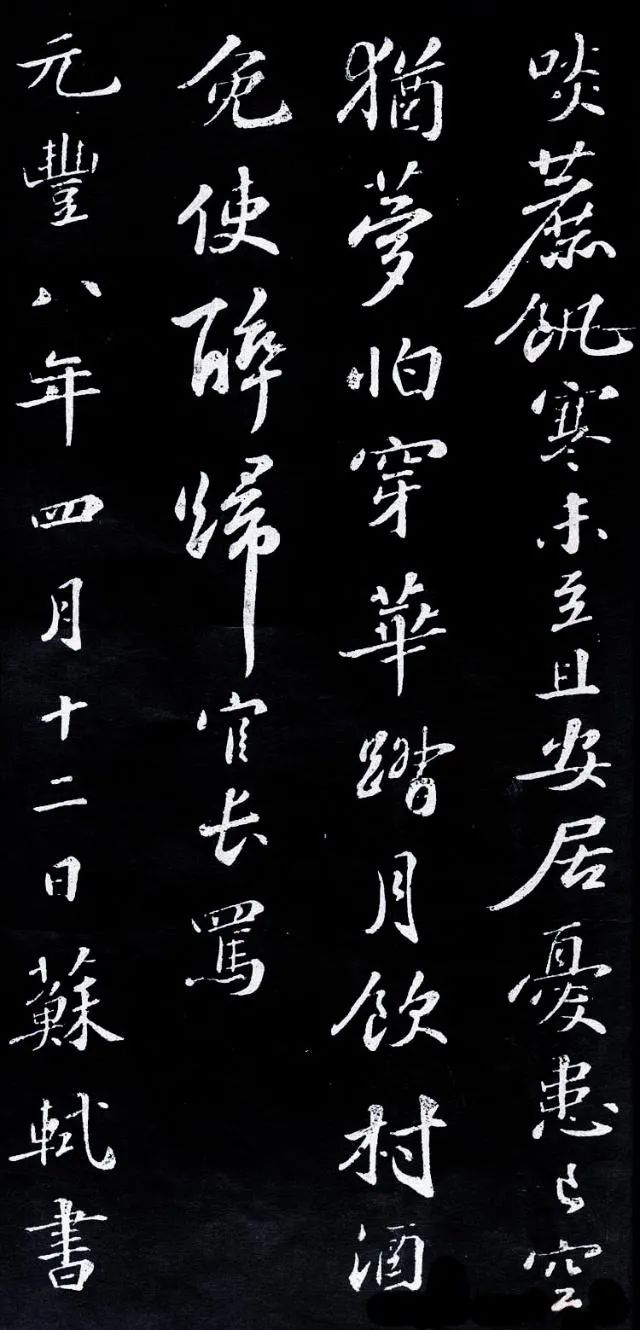 啖蔗飢寒未立且安居憂患已空
猶夢怕穿華踏月飲村酒
免使醉歸官長罵
元豐八年四月十二日蘇軾書